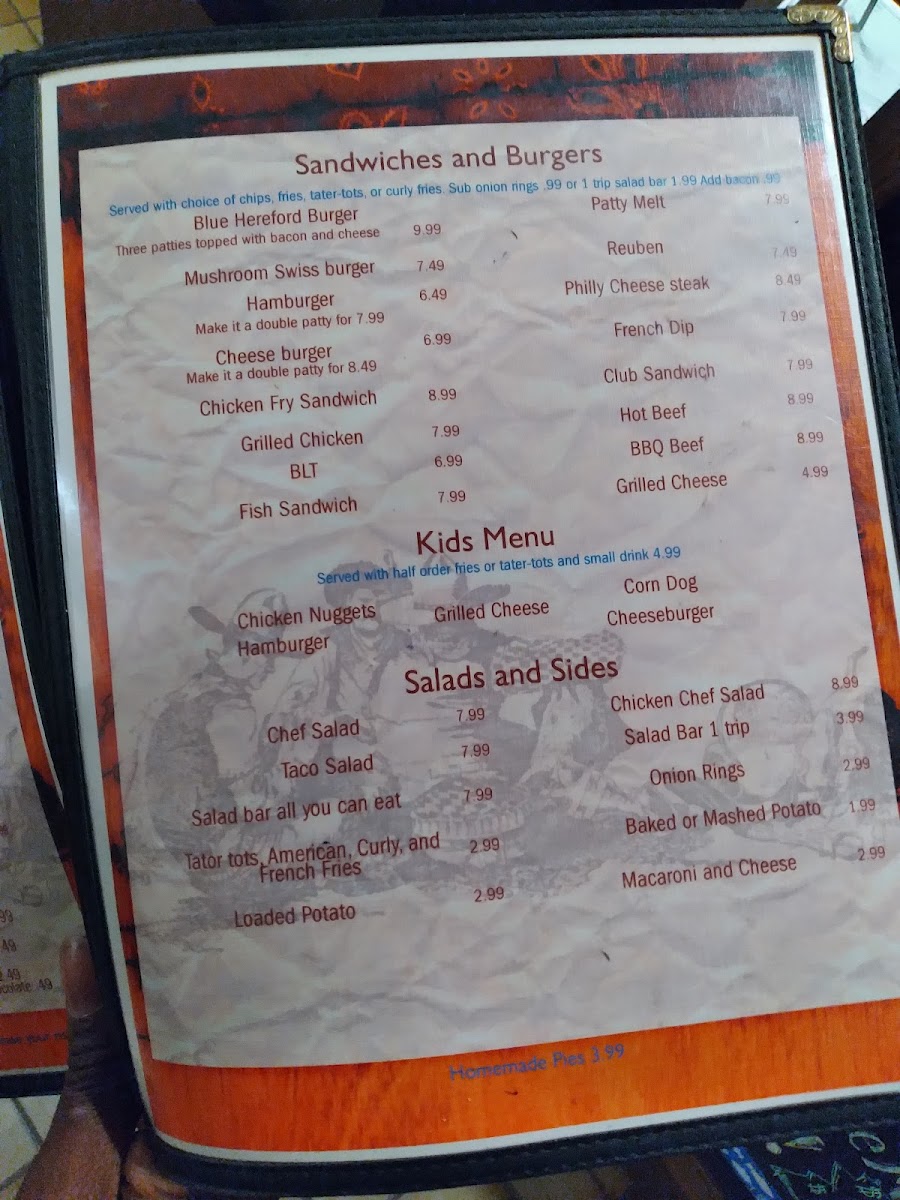 Sandwiches and Burgers
Served with choice of chips, fries, tater-tots, or curly fries. Sub onion rings .99 or 1 trip salad bar 1.99 Add bacon .99
Blue Hereford Burger 9.99
Three patties topped with bacon and cheese
Mushroom Swiss burger 7.49
Hamburger 6.49
Make it a double patty for 7.99
Cheese burger 6.99
Make it a double patty for 8.49
Chicken Fry Sandwich 8.99
Grilled Chicken 7.99
BLT 6.99
Fish Sandwich 7.99
Patty Melt 7.99
Reuben 7.49
Philly Cheese steak 8.49
French Dip 7.99
Club Sandwich 7.99
Hot Beef 8.99
BBQ Beef 8.99
Grilled Cheese 4.99
Kids Menu
Served with half order fries or tater-tots and small drink 4.99
Chicken Nuggets
Hamburger
Grilled Cheese
Corn Dog
Cheeseburger
Salads and Sides
Chef Salad 7.99
Taco Salad 7.99
Salad bar all you can eat 7.99
Tator tots, American, Curly, and
French Fries 2.99
Loaded Potato 2.99
Chicken Chef Salad 8.99
Salad Bar 1 trip 3.99
Onion Rings 2.99
Baked or Mashed Potato 1.99
Macaroni and Cheese 2.99
Homemade Pies 3.99